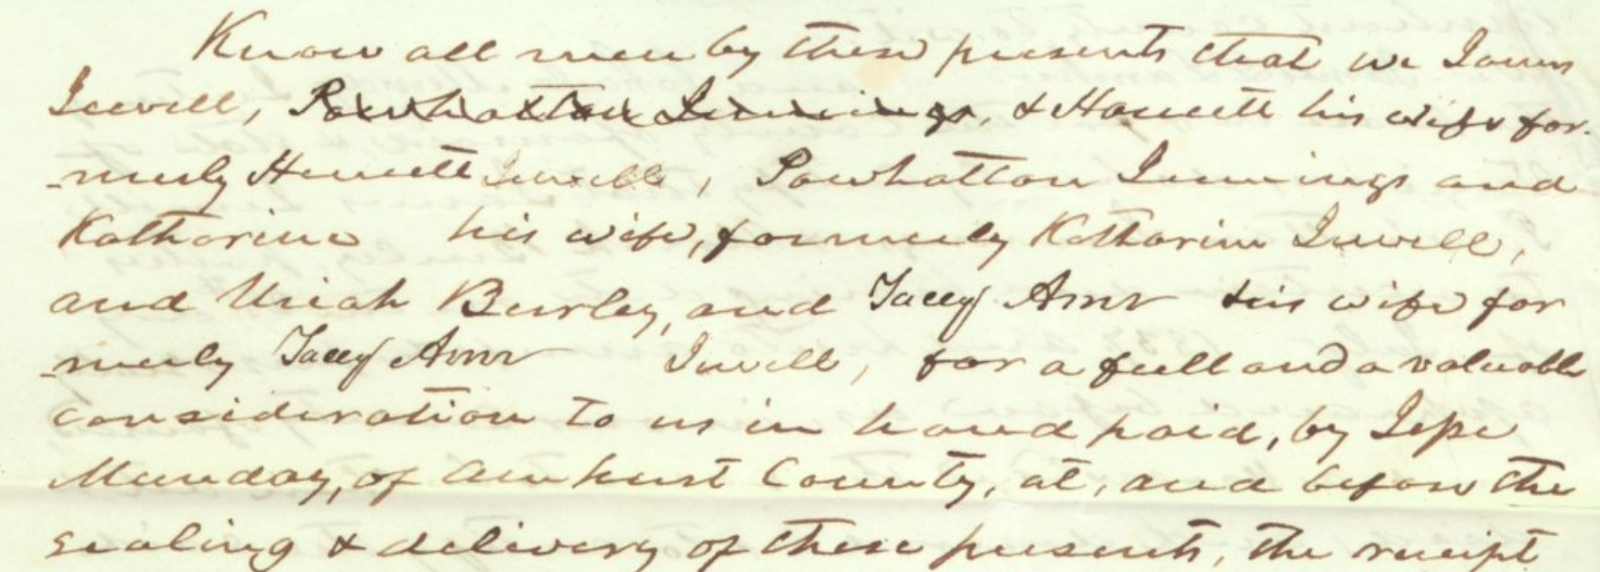 Know all men by these presents that we James
Jewell, Powhattan Jennings, & Harriett his wife for-
-merly Harriett Jewell, Powhattan Jennings and
Katharine his wife, formerly Katharine Jewell,
and Uriah Burley, and Tacey Ann his wife for
-merly Tacey Ann Jewell, for a full and a valuable
consideration to us in hand paid, by Jesse
Munday, of Amherst County, at, and before the
sealing & delivery of these presents, the receipt